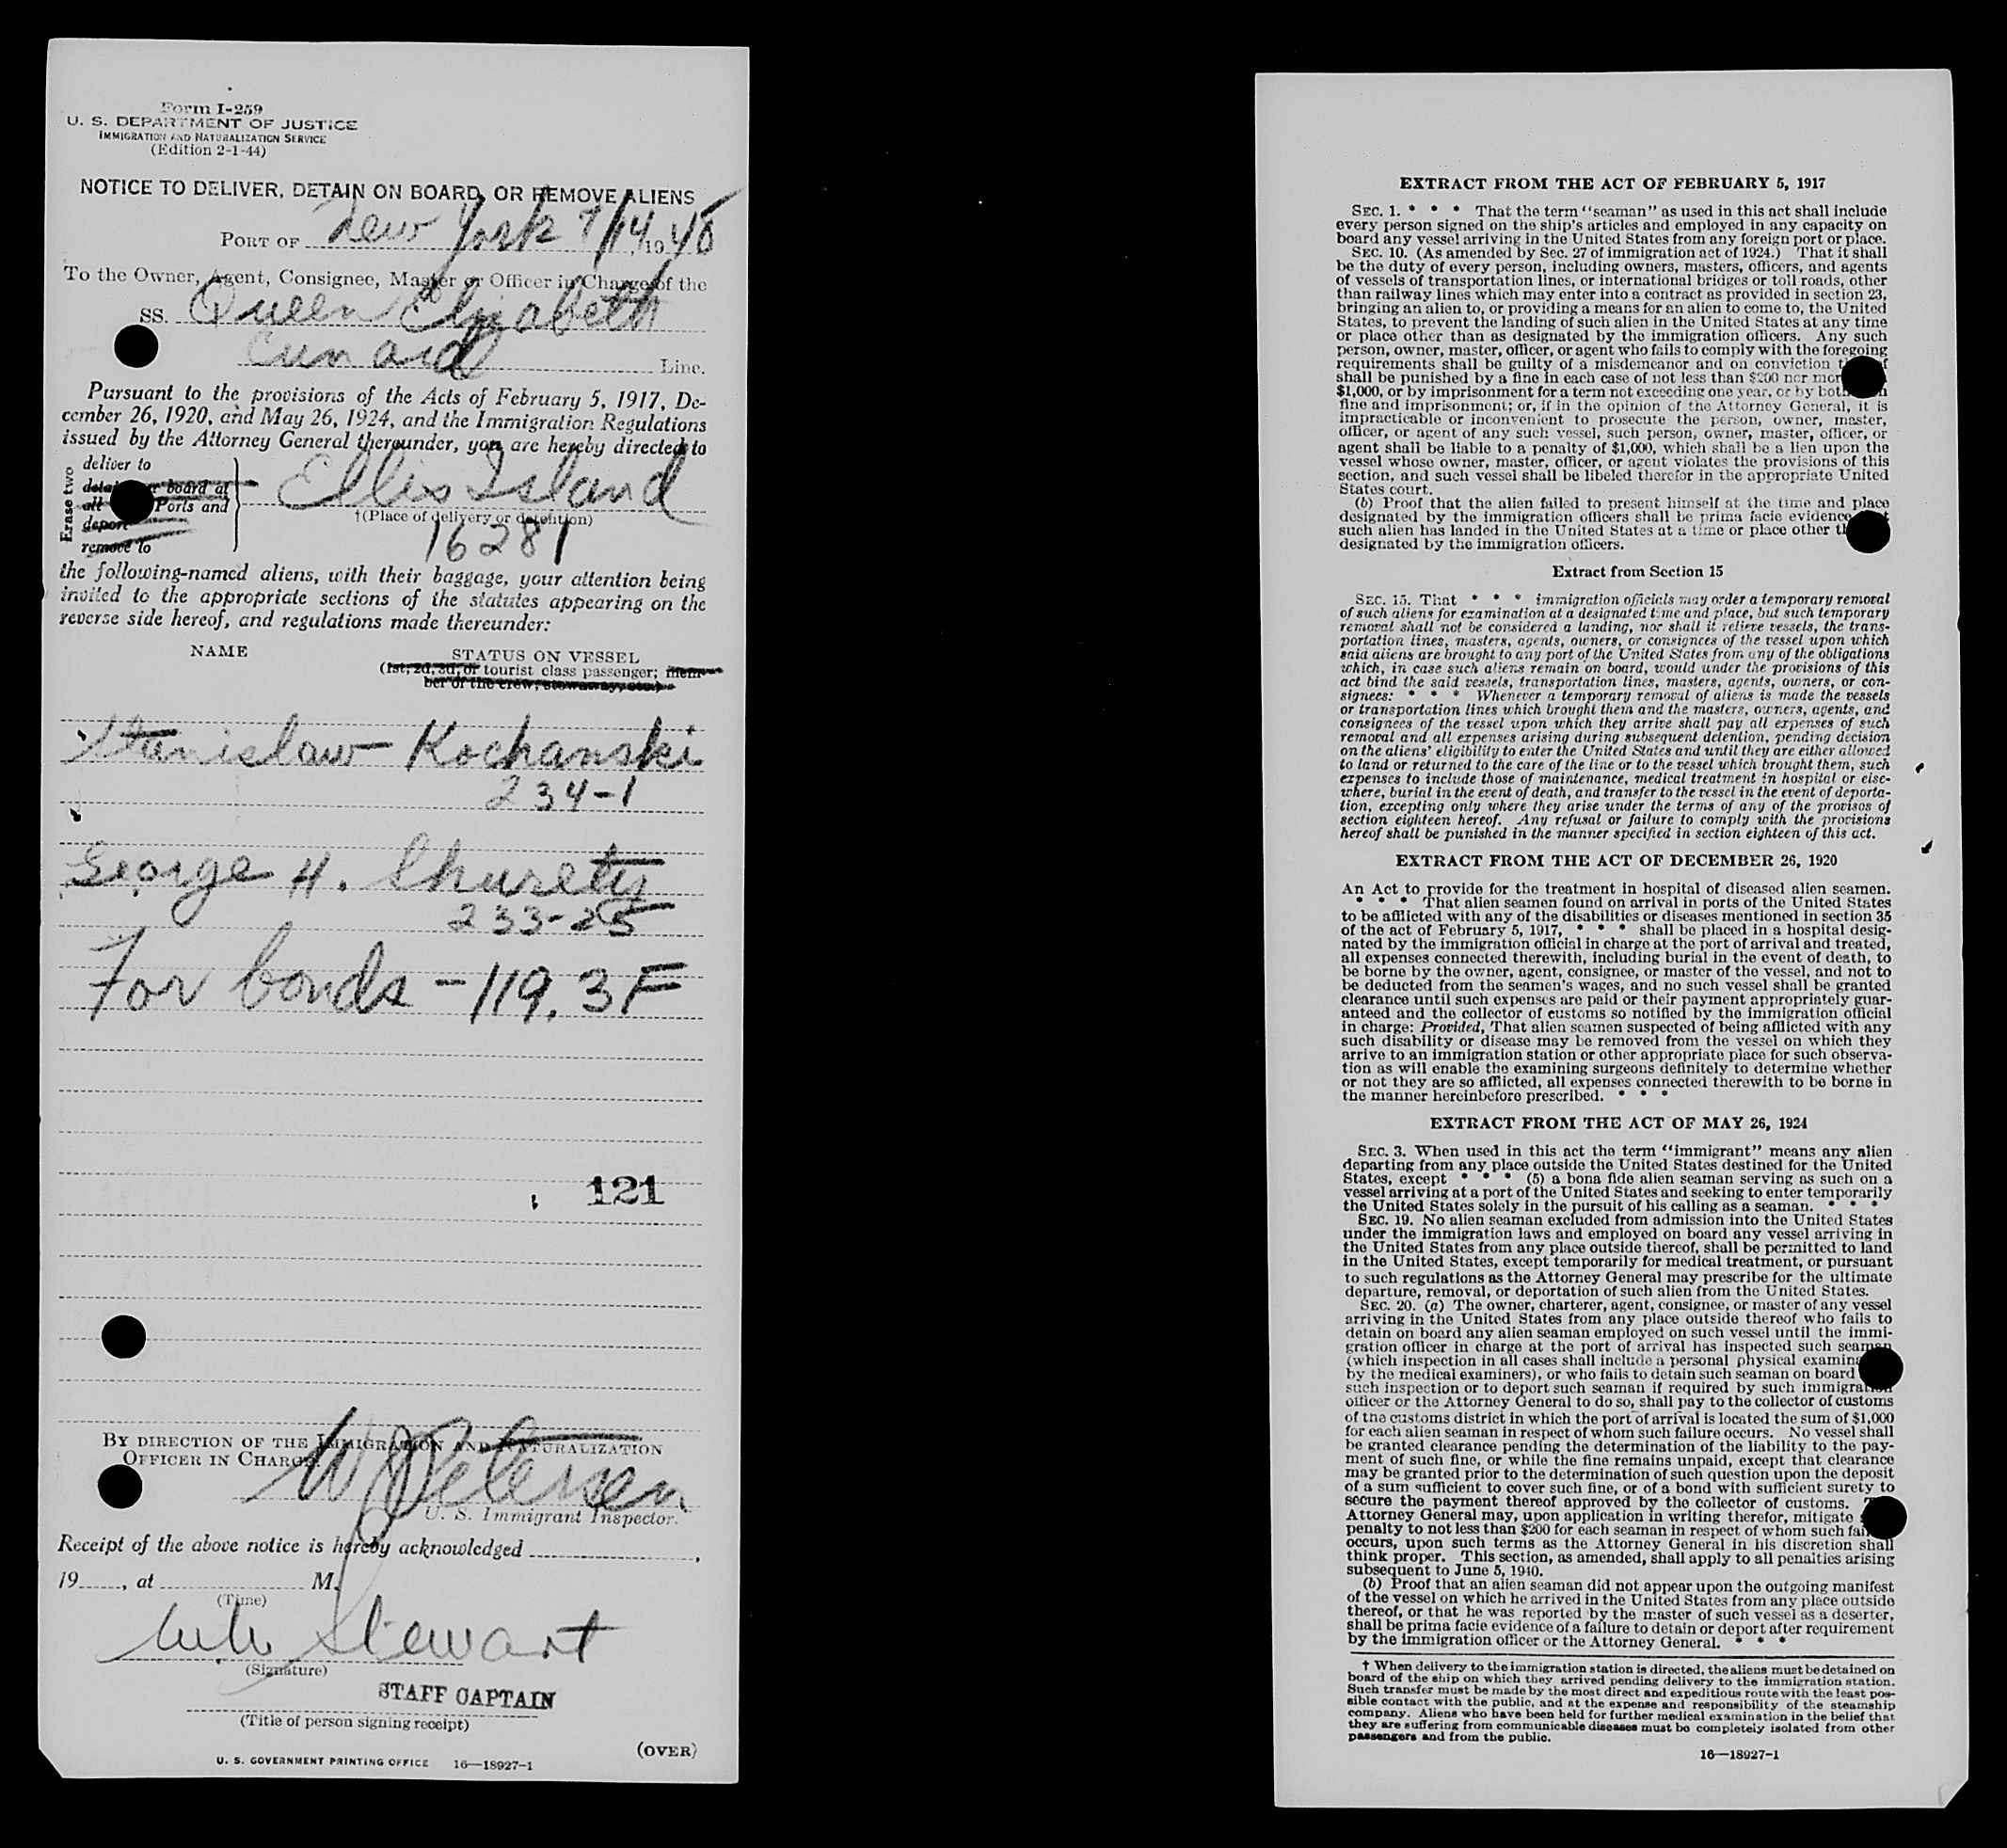 Form I-259
U. S. DEPARTMENT OF JUSTICE
IMMIGRATION AND NATURALIZATION SERVICE
(Edition 2-1-44)
NOTICE TO DELIVER, DETAIN ON BOARD, OR REMOVE ALIENS
PORT OF New York 7/14, 19 48
To the Owner, Agent, Consignee, Master or Officer in Charge of the
SS. Queen Elizabeth
Cunard Line.
Pursuant to the provisions of the Acts of February 5, 1917, De-
cember 26, 1920, and May 26, 1924, and the Immigration Regulations
issued by the Attorney General thereunder, you are hereby directed to
Erase two
deliver to
board at
all Ports and
deport
remove to
Ellis Island
†(Place of delivery or detention)
16281
the following-named aliens, with their baggage, your attention being
invited to the appropriate sections of the statutes appearing on the
reverse side hereof, and regulations made thereunder:
NAME STATUS ON VESSEL
(1st, 2d, 3d, or tourist class passenger; mem-
ber of the crew, stowaway, etc.)
Stanislaw Kochanski
234-1
George H. Shurety
233-25
For bonds - 119.3F
121
BY DIRECTION OF THE IMMIGRATION AND NATURALIZATION
OFFICER IN CHARGE
W Petersen
U. S. Immigrant Inspector.
Receipt of the above notice is hereby acknowledged ,
19 , at M.
(Time)
Stewart
(Signature)
STAFF CAPTAIN
(Title of person signing receipt)
(OVER)
U. S. GOVERNMENT PRINTING OFFICE 16—18927-1
EXTRACT FROM THE ACT OF FEBRUARY 5, 1917
SEC. 1. * * * That the term "seaman" as used in this act shall include
every person signed on the ship's articles and employed in any capacity on
board any vessel arriving in the United States from any foreign port or place.
SEC. 10. (As amended by Sec. 27 of immigration act of 1924.) That it shall
be the duty of every person, including owners, masters, officers, and agents
of vessels of transportation lines, or international bridges or toll roads, other
than railway lines which may enter into a contract as provided in section 23,
bringing an alien to, or providing a means for an alien to come to, the United
States, to prevent the landing of such alien in the United States at any time
or place other than as designated by the immigration officers. Any such
person, owner, master, officer, or agent who fails to comply with the foregoing
requirements shall be guilty of a misdemeanor and on conviction
shall be punished by a fine in each case of not less than $200 nor mor
$1,000, or by imprisonment for a term not exceeding one year, or by both
fine and imprisonment; or, if in the opinion of the Attorney General, it is
impracticable or inconvenient to prosecute the person, owner, master,
officer, or agent of any such vessel, such person, owner, master, officer, or
agent shall be liable to a penalty of $1,000, which shall be a lien upon the
vessel whose owner, master, officer, or agent violates the provisions of this
section, and such vessel shall be libeled therefor in the appropriate United
States court.
(b) Proof that the alien failed to present himself at the time and place
designated by the immigration officers shall be prima facie evidence
such alien has landed in the United States at a time or place other
designated by the immigration officers.
Extract from Section 15
SEC. 15. That * * * immigration officials may order a temporary removal
of such aliens for examination at a designated time and place, but such temporary
removal shall not be considered a landing, nor shall it relieve vessels, the trans-
portation lines, masters, agents, owners, or consignees of the vessel upon which
said aliens are brought to any port of the United States from any of the obligations
which, in case such aliens remain on board, would under the provisions of this
act bind the said vessels, transportation lines, masters, agents, owners, or con-
signees: * * * Whenever a temporary removal of aliens is made the vessels
or transportation lines which brought them and the masters, owners, agents, and
consignees of the vessel upon which they arrive shall pay all expenses of such
removal and all expenses arising during subsequent detention, pending decision
on the aliens' eligibility to enter the United States and until they are either allowed
to land or returned to the care of the line or to the vessel which brought them, such
expenses to include those of maintenance, medical treatment in hospital or else-
where, burial in the event of death, and transfer to the vessel in the event of deporta-
tion, excepting only where they arise under the terms of any of the provisos of
section eighteen hereof. Any refusal or failure to comply with the provisions
hereof shall be punished in the manner specified in section eighteen of this act.
EXTRACT FROM THE ACT OF DECEMBER 26, 1920
An Act to provide for the treatment in hospital of diseased alien seamen.
* * * That alien seamen found on arrival in ports of the United States
to be afflicted with any of the disabilities or diseases mentioned in section 35
of the act of February 5, 1917, * * * shall be placed in a hospital desig-
nated by the immigration official in charge at the port of arrival and treated,
all expenses connected therewith, including burial in the event of death, to
be borne by the owner, agent, consignee, or master of the vessel, and not to
be deducted from the seamen's wages, and no such vessel shall be granted
clearance until such expenses are paid or their payment appropriately guar-
anteed and the collector of customs so notified by the immigration official
in charge: Provided, That alien seamen suspected of being afflicted with any
such disability or disease may be removed from the vessel on which they
arrive to an immigration station or other appropriate place for such observa-
tion as will enable the examining surgeons definitely to determine whether
or not they are so afflicted, all expenses connected therewith to be borne in
the manner hereinbefore prescribed. * * *
EXTRACT FROM THE ACT OF MAY 26, 1924
SEC. 3. When used in this act the term "immigrant" means any alien
departing from any place outside the United States destined for the United
States, except * * * (5) a bona fide alien seaman serving as such on a
vessel arriving at a port of the United States and seeking to enter temporarily
the United States solely in the pursuit of his calling as a seaman. * * *
SEC. 19. No alien seaman excluded from admission into the United States
under the immigration laws and employed on board any vessel arriving in
the United States from any place outside thereof, shall be permitted to land
in the United States, except temporarily for medical treatment, or pursuant
to such regulations as the Attorney General may prescribe for the ultimate
departure, removal, or deportation of such alien from the United States.
SEC. 20. (a) The owner, charterer, agent, consignee, or master of any vessel
arriving in the United States from any place outside thereof who fails to
detain on board any alien seaman employed on such vessel until the immi-
gration officer in charge at the port of arrival has inspected such seaman
(which inspection in all cases shall include a personal physical examina
by the medical examiners), or who fails to detain such seaman on board
such inspection or to deport such seaman if required by such immigration
officer or the Attorney General to do so, shall pay to the collector of customs
of the customs district in which the port of arrival is located the sum of $1,000
for each alien seaman in respect of whom such failure occurs. No vessel shall
be granted clearance pending the determination of the liability to the pay-
ment of such fine, or while the fine remains unpaid, except that clearance
may be granted prior to the determination of such question upon the deposit
of a sum sufficient to cover such fine, or of a bond with sufficient surety to
secure the payment thereof approved by the collector of customs.
Attorney General may, upon application in writing therefor, mitigate
penalty to not less than $200 for each seaman in respect of whom such fai
occurs, upon such terms as the Attorney General in his discretion shall
think proper. This section, as amended, shall apply to all penalties arising
subsequent to June 5, 1940.
(b) Proof that an alien seaman did not appear upon the outgoing manifest
of the vessel on which he arrived in the United States from any place outside
thereof, or that he was reported by the master of such vessel as a deserter,
shall be prima facie evidence of a failure to detain or deport after requirement
by the immigration officer or the Attorney General. * * *
† When delivery to the immigration station is directed, the aliens must be detained on
board of the ship on which they arrived pending delivery to the immigration station.
Such transfer must be made by the most direct and expeditious route with the least pos-
sible contact with the public, and at the expense and responsibility of the steamship
company. Aliens who have been held for further medical examination in the belief that
they are suffering from communicable diseases must be completely isolated from other
passengers and from the public.
16—18927-1